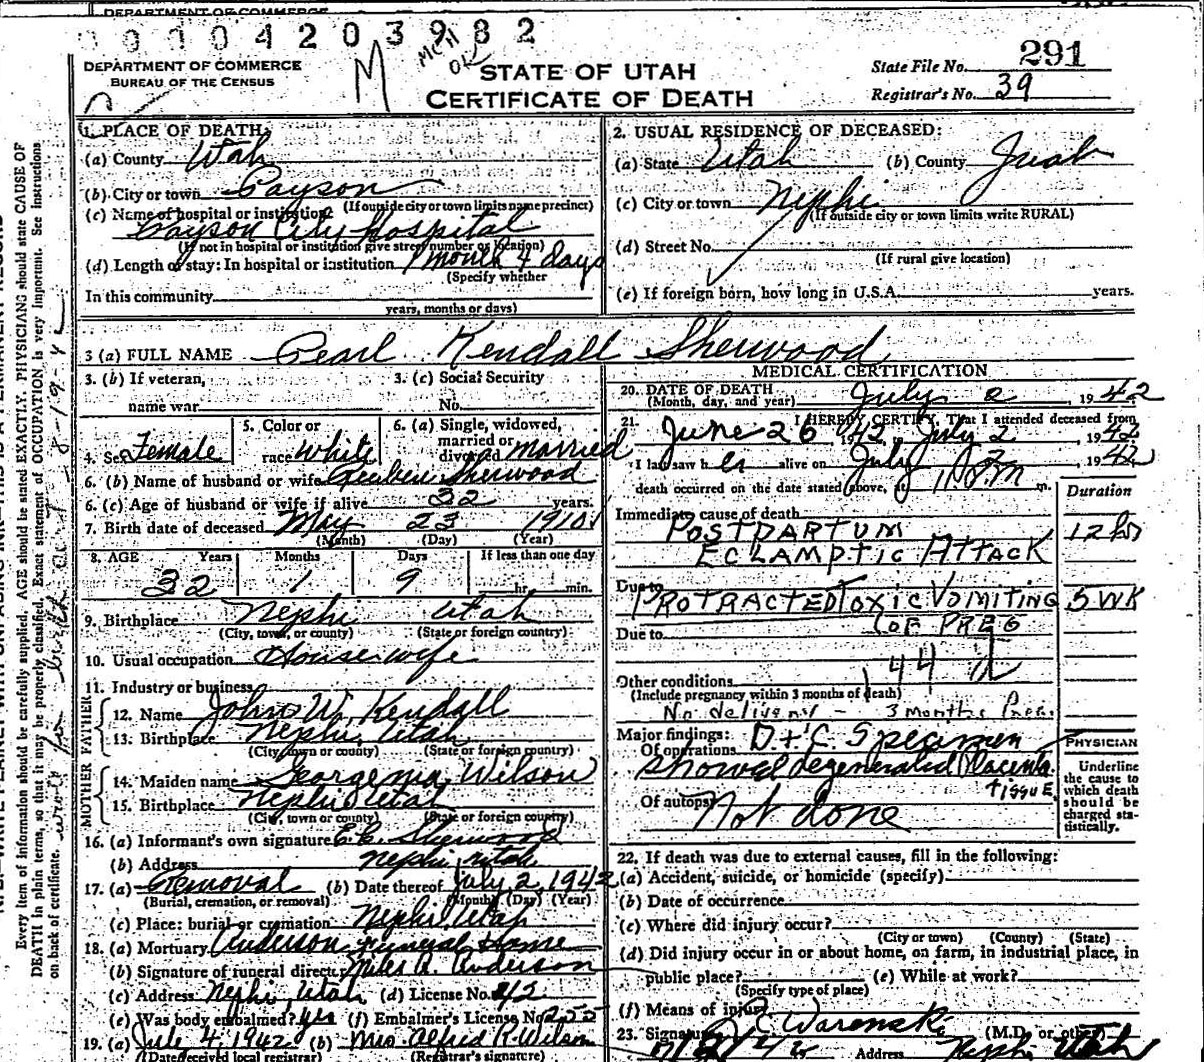 DEPARTMENT OF COMMERCE
0 0 1 0 4 2 0 3 9 8 2
DEPARTMENT OF COMMERCE
BUREAU OF THE CENSUS
M
MCH
OK
STATE OF UTAH
CERTIFICATE OF DEATH
State File No. 291
Registrar's No. 39
1. PLACE OF DEATH:
(a) County Utah
(b) City or town Payson
(If outside city or town limits name precinct)
(c) Name of hospital or institution:
Payson City Hospital
(If not in hospital or institution give street number or location)
(d) Length of stay: In hospital or institution 1 month 4 days
(Specify whether
In this community
years, months or days)
2. USUAL RESIDENCE OF DECEASED:
(a) State Utah (b) County Juab
(c) City or town Nephi
(If outside city or town limits write RURAL)
(d) Street No.
(If rural give location)
(e) If foreign born, how long in U.S.A. years.
3 (a) FULL NAME Pearl Kendall Sherwood
3. (b) If veteran, name war
3. (c) Social Security No.
4. Sex Female
5. Color or race White
6. (a) Single, widowed, married or divorced married
6. (b) Name of husband or wife Reuben Sherwood
6. (c) Age of husband or wife if alive 32 years.
7. Birth date of deceased May 23 1910
(Month) (Day) (Year)
8. AGE Years Months Days If less than one day
32 1 9 hr. min.
9. Birthplace Nephi Utah
(City, town, or county) (State or foreign country)
10. Usual occupation Housewife
11. Industry or business
FATHER
12. Name John W. Kendall
13. Birthplace Nephi, Utah
(City, town or county) (State or foreign country)
MOTHER
14. Maiden name Georgenia Wilson
15. Birthplace Nephi Utah
(City, town or county) (State or foreign country)
16. (a) Informant's own signature E.C. Sherwood
(b) Address Nephi, Utah
17. (a) Removal (b) Date thereof July 2, 1942
(Burial, cremation, or removal) (Month) (Day) (Year)
(c) Place: burial or cremation Nephi, Utah
18. (a) Mortuary Anderson Funeral Home
(b) Signature of funeral director Miles R. Anderson
(c) Address Nephi, Utah (d) License No. 212
(e) Was body embalmed? yes (f) Embalmer's License No. 255
19. (a) July 4, 1942 (b) Mrs Alfred R. Wilson
(Date received local registrar) (Registrar's signature)
MEDICAL CERTIFICATION
20. DATE OF DEATH July 2, 1942
(Month, day, and year)
21. I HEREBY CERTIFY, That I attended deceased from
June 26 1942, July 2, 1942
I last saw her alive on July 2, 1942
death occurred on the date stated above, at m.
Duration
Immediate cause of death
POSTPARTUM 12 hrs
ECLAMPTIC ATTACK
Due to
PROTRACTED TOXIC VOMITING 5 WK
Due to (OF PREG
144
Other conditions
(Include pregnancy within 3 months of death)
No delivery - 3 months Preg.
Major findings:
Of operations D + C Specimen
showed degenerated placenta
tissue
Of autopsy Not done
PHYSICIAN
Underline
the cause to
which death
should be
charged sta-
tistically.
22. If death was due to external causes, fill in the following:
(a) Accident, suicide, or homicide (specify)
(b) Date of occurrence
(c) Where did injury occur?
(City or town) (County) (State)
(d) Did injury occur in or about home, on farm, in industrial place, in
public place? (e) While at work?
(Specify type of place)
(f) Means of injury
23. Signature Warenski (M.D. or other
Address Nephi Utah
Every item of information should be carefully supplied. AGE should be stated EXACTLY. PHYSICIANS should state CAUSE OF
DEATH in plain terms, so that it may be properly classified. Exact statement of OCCUPATION is very important. See instructions
on back of certificate.